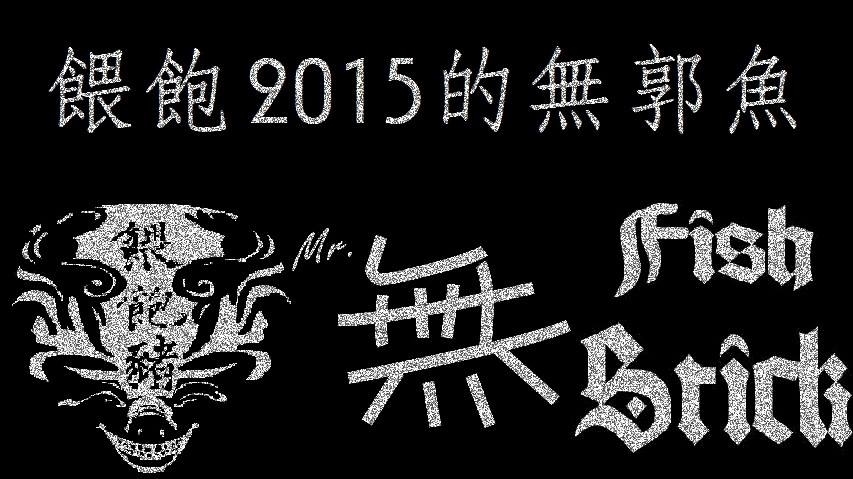 餵飽2015的無郭魚
餵
飽
豬
Mr.
無
Fish
Stick